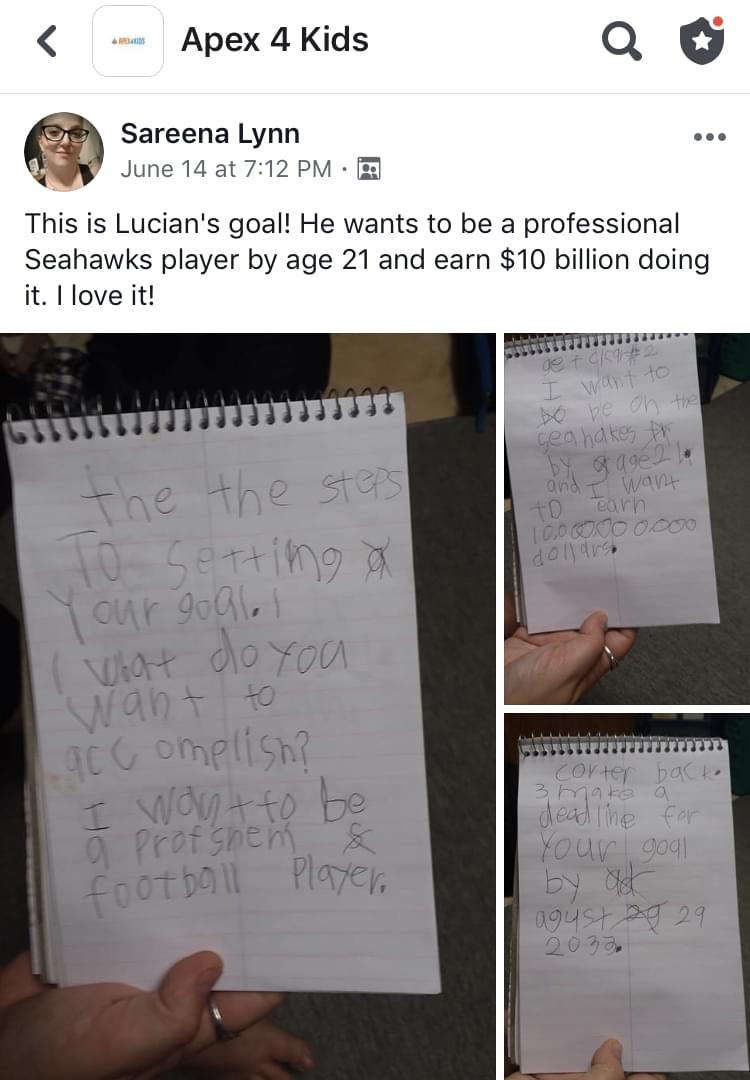 APEX4KIDS
Apex 4 Kids
Sareena Lynn
June 14 at 7:12 PM ·
This is Lucian's goal! He wants to be a professional
Seahawks player by age 21 and earn $10 billion doing
it. I love it!
the the steps
To setting
Your goal. 1
What do you
want to
acc omplish?
I want to be
a Profshenl &
football Player.
get clear #2
I want to
be on the
Seahakes
by age 21
and I want
to earn
10,000000 0.000
dollars.
corter back.
3 make a
deadline for
Your goal
by
agust 29
2033.